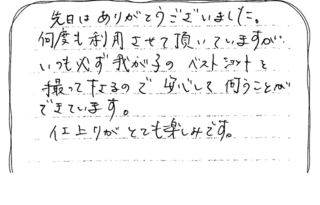 先日はありがとうございました。
何度も利用させて頂いていますが、
いつも必ず我が子のベストショットを
撮って下さるので安心して伺うことが
できています。
仕上りがとても楽しみです。